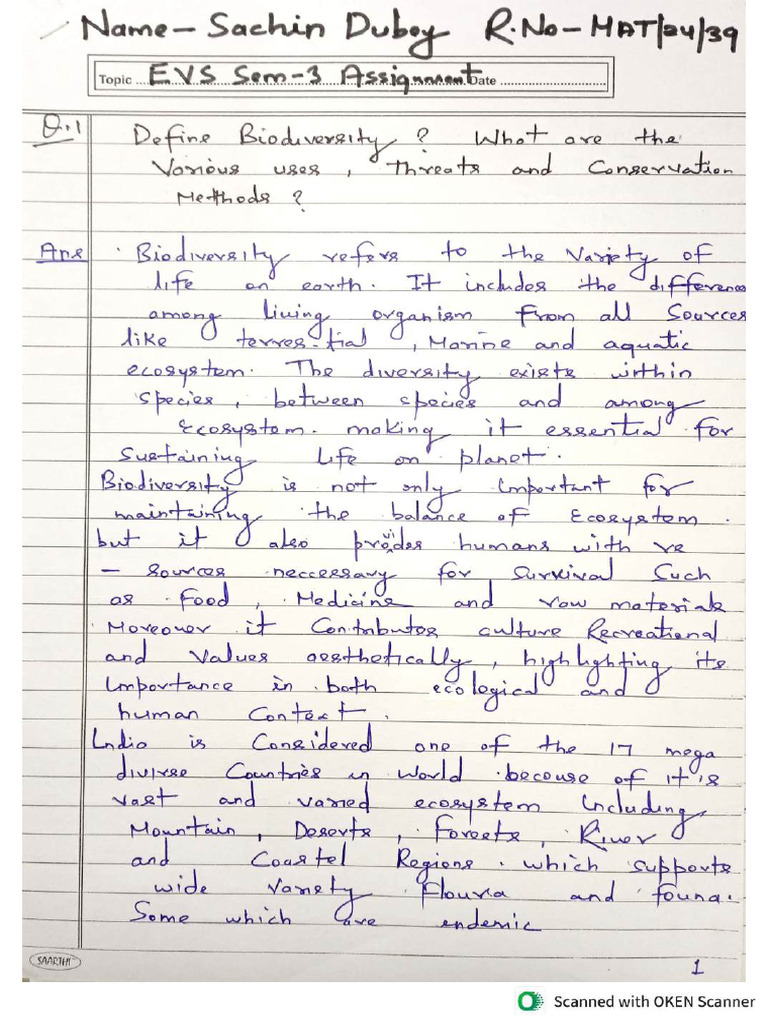 Name - Sachin Dubey R.No - MAT/24/39
Topic EVS Sem-3 Assignment Date
Q.1 Define Biodiversity ? What are the
Various uses, Threats and Conservation
Methods ?
Ans Biodiversity refers to the Variety of
life on earth. It includes the difference
among living organism from all Sources
like terrestial, Marine and aquatic
ecosystem. The diversity exists within
species, between species and among
Ecosystem. making it essential for
Sustaining life on planet.
Biodiversity is not only important for
maintaining the balance of Ecosystem.
but it also provides humans with re
- sources neccessary for survival Such
as Food, Medicine and raw materials
Moreover it Contributes culture Recreational
and Values aesthetically, highlighting its
importance in both ecological and
human Context.
India is Considered one of the 17 mega
divirse Countries in World because of it's
vast and varied ecosystem including
Mountain, Deserts, Forests, River
and Coastel Regions. which supports
wide Variety Flouria and founa.
Some which are endemic
SAARTHI
1
Scanned with OKEN Scanner